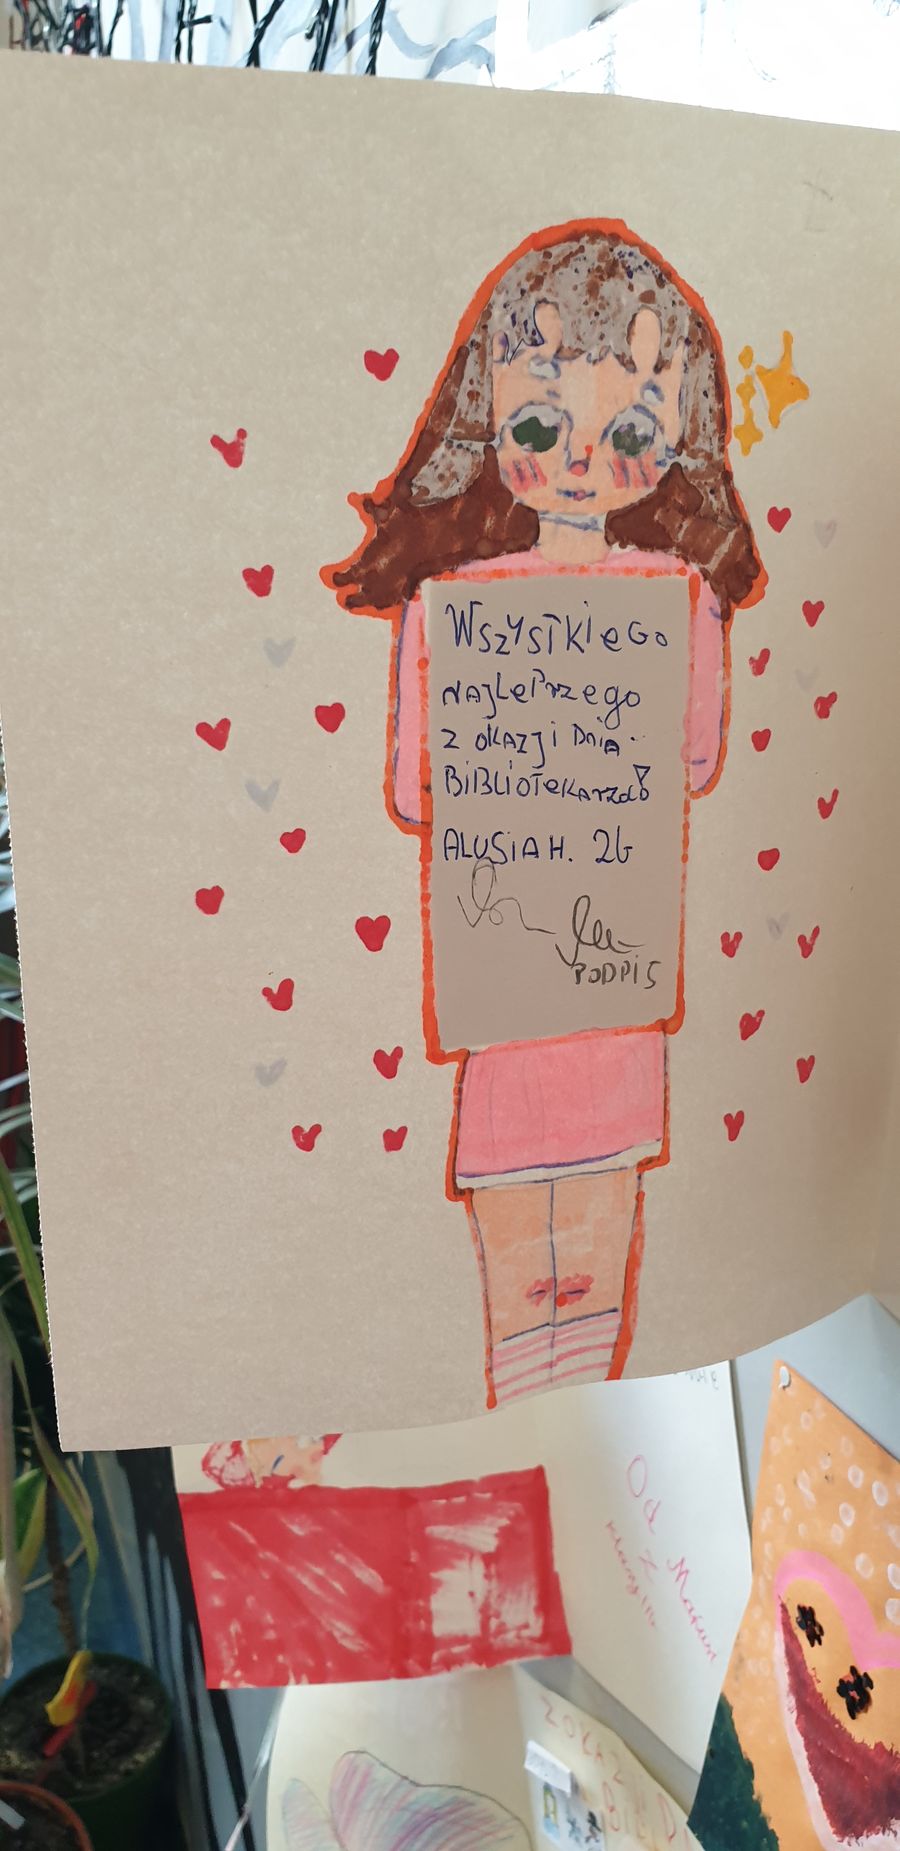 Wszystkiego
najleprzego
z okazji Dnia
Bibliotekarza!
Alusia H. 2b
PODPIS
Od
z
klasy III
Z OKAZJI